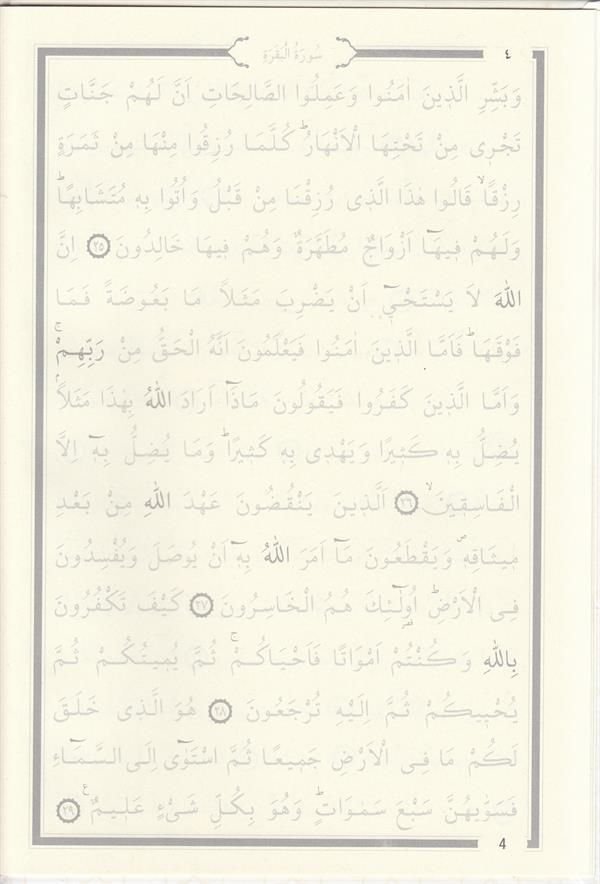 ٤
سُورَةُ الْبَقَرَةِ
وَبَشِّرِ الَّذِينَ اٰمَنُوا وَعَمِلُوا الصَّالِحَاتِ اَنَّ لَهُمْ جَنَّاتٍ
تَجْرِى مِنْ تَحْتِهَا الْاَنْهَارُۜ كُلَّمَا رُزِقُوا مِنْهَا مِنْ ثَمَرَةٍ
رِزْقًاۙ قَالُوا هٰذَا الَّذِى رُزِقْنَا مِنْ قَبْلُ وَاُتُوا بِهِ مُتَشَابِهًاۜ
وَلَهُمْ فِيهَٓا اَزْوَاجٌ مُطَهَّرَةٌ وَهُمْ فِيهَا خَالِدُونَ ﴿٢٥﴾ اِنَّ
اللّٰهَ لَا يَسْتَحْيِٓ اَنْ يَضْرِبَ مَثَلًا مَا بَعُوضَةً فَمَا
فَوْقَهَاۜ فَاَمَّا الَّذِينَ اٰمَنُوا فَيَعْلَمُونَ اَنَّهُ الْحَقُّ مِنْ رَبِّهِمْۚ
وَاَمَّا الَّذِينَ كَفَرُوا فَيَقُولُونَ مَاذَٓا اَرَادَ اللّٰهُ بِهٰذَا مَثَلًاۘ
يُضِلُّ بِهِ كَثِيرًا وَيَهْدِى بِهِ كَثِيرًاۜ وَمَا يُضِلُّ بِهِٓ اِلَّا
الْفَاسِقِينَۙ ﴿٢٦﴾ اَلَّذِينَ يَنْقُضُونَ عَهْدَ اللّٰهِ مِنْ بَعْدِ
مِيثَاقِهِۖ وَيَقْطَعُونَ مَٓا اَمَرَ اللّٰهُ بِهِٓ اَنْ يُوصَلَ وَيُفْسِدُونَ
فِى الْاَرْضِۜ اُولٰٓئِكَ هُمُ الْخَاسِرُونَ ﴿٢٧﴾ كَيْفَ تَكْفُرُونَ
بِاللّٰهِ وَكُنْتُمْ اَمْوَاتًا فَاَحْيَاكُمْۚ ثُمَّ يُمِيتُكُمْ ثُمَّ
يُحْيِيكُمْ ثُمَّ اِلَيْهِ تُرْجَعُونَ ﴿٢٨﴾ هُوَ الَّذِى خَلَقَ
لَكُمْ مَا فِى الْاَرْضِ جَمِيعًا ثُمَّ اسْتَوٰٓى اِلَى السَّمَٓاءِ
فَسَوّٰيهُنَّ سَبْعَ سَمٰوَاتٍۜ وَهُوَ بِكُلِّ شَىْءٍ عَلِيمٌ۟ ﴿٢٩﴾
4